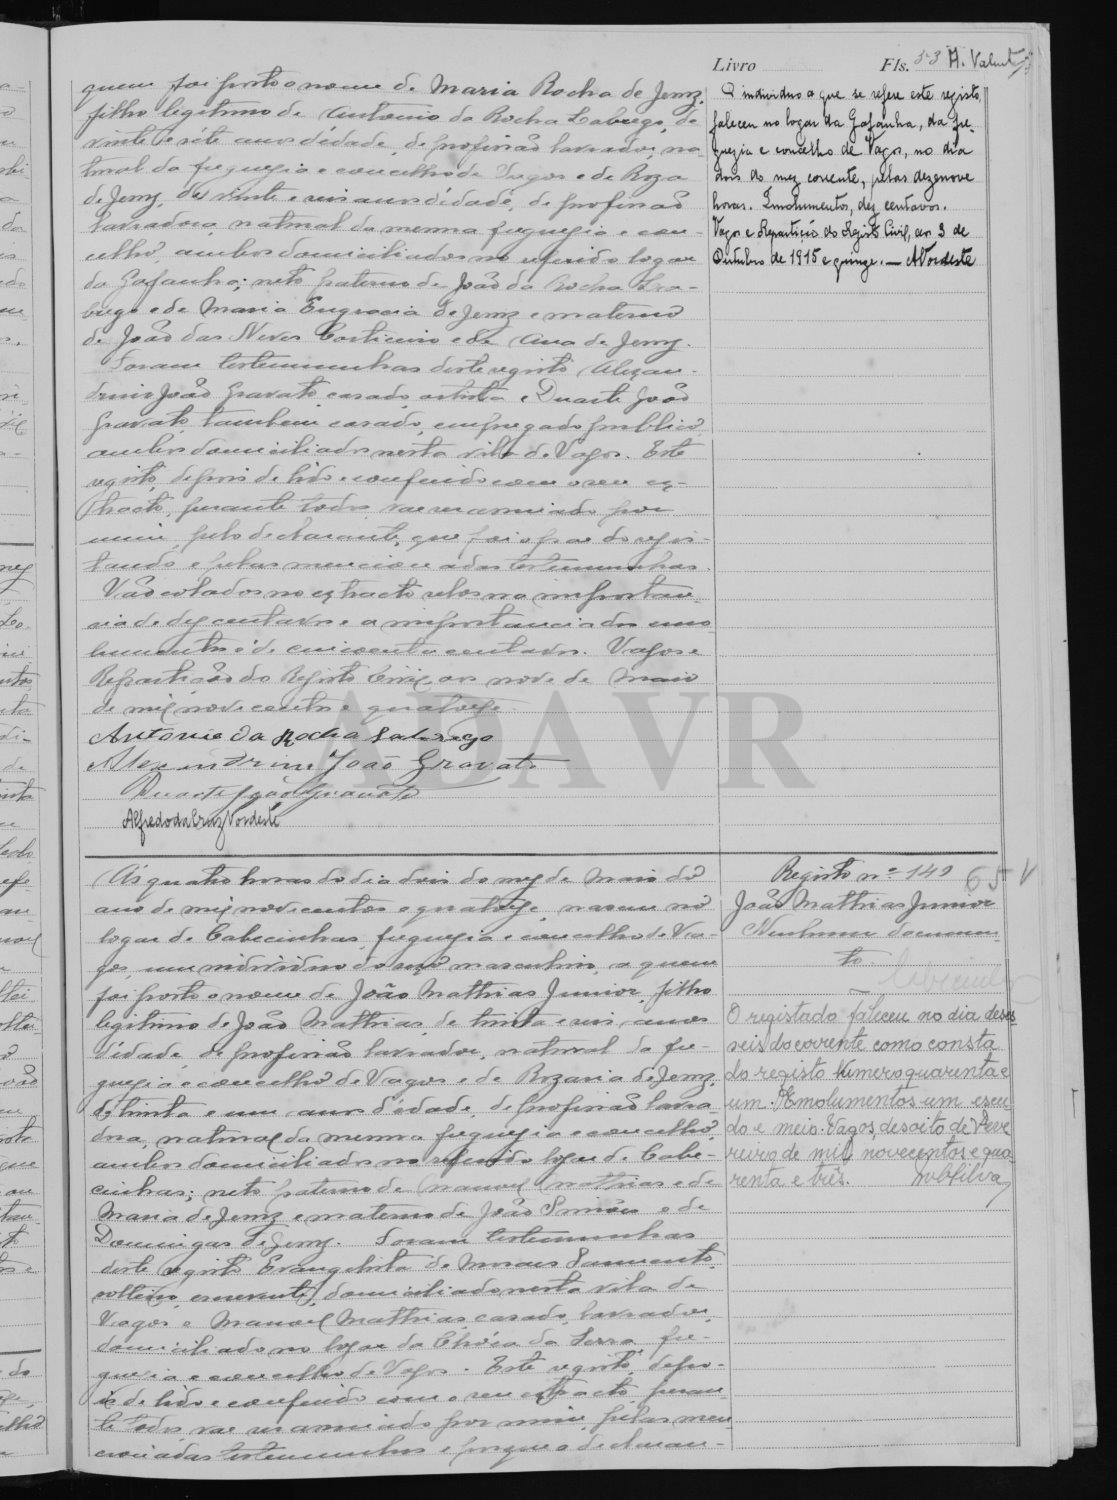 Livro Fls. 53 A. Valent
quem foi posto o nome de Maria Rocha de Jesus,
filho legitimo de Antonio da Rocha Labrego, de
vinte e sete anos d'idade, de profissão lavrador, na
tural da freguesia e concelho de Vagos e de Roza
de Jesus, de vinte e seis anos d'idade, de profissão
lavradora, natural da mesma freguesia e con-
celho, ambos domiciliados no referido logar
da Gafanha; neto paterno de João da Rocha La-
brego e de Maria Engracia de Jesus e materno
de João das Neves e de Ana de Jesus.
Foram testemunhas deste registo Alexan-
drino João Gravato casado, artista e Duarte João
Gravato, tambem casado, empregado publico
ambos domiciliados nesta vila de Vagos. Este
registo, depois de lido e conferido com o seu ex-
tracto, perante todos vae ser assinado por
mim, pelo declarante, que foi o pae do regis-
tando e pelas mencionadas testemunhas.
Vão colados no extracto selos na importan-
cia de dez centavos e a importancia dos emo
lumentos é de cincoenta centavos. Vagos e
Repartição do Registo Civil, aos nove de Maio
de mil novecentos e quatorze.
Antonio da Rocha Labrego
Alexandrino João Gravato
Duarte João Gravato
Alfredo da Cruz Nordeste
O individuo a que se refere este registo,
faleceu no logar da Gafanha, da fre-
guezia e concelho de Vagos, no dia
dois do mez corrente, pelas dezenove
horas. Emolumentos, dez centavos.
Vagos e Repartição do Registo Civil, aos 3 de
Outubro de 1915 e quinze. — ANordeste
ADAVR
Ás quatro horas do dia dois do mez de Maio do
ano de mil novecentos e quatorze, nasceu no
logar de Cabecinhas, freguesia e concelho de Va-
gos, um individuo do sexo masculino, a quem
foi posto o nome de João Mathias Junior, filho
legitimo de João Mathias, de trinta e seis anos
d'idade, de profissão lavrador, natural da fre-
guesia e concelho de Vagos e de Rozaria de Jesus,
de trinta e um anos d'idade, de profissão lavra
dora, natural da mesma freguesia e concelho,
ambos domiciliados no referido logar de Cabe-
cinhas; neto paterno de Manoel Mathias e de
Maria de Jesus e materno de João Simões e de
Domingas de Jesus. Foram testemunhas
deste registo Evangelista de Moraes Sarmento,
solteiro, escrevente, domiciliado nesta vila de
Vagos e Manoel Mathias, casado, lavrador,
domiciliado no logar da Chóca da Serra, fre-
guesia e concelho de Vagos. Este registo, depo-
is de lido e conferido com o seu extracto, peran-
te todos, vae ser assinado por mim, pelas men
cionadas testemunhas e porque o declaran-
Registo nº 149
65 V
João Mathias Junior
Nenhum documen-
to
O registado faleceu no dia deses-
seis do corrente como consta
do registo número quarenta e
um. Emolumentos um escu-
do e meio. Vagos, desoito de Feve
reiro de mil novecentos e qua-
renta e três.